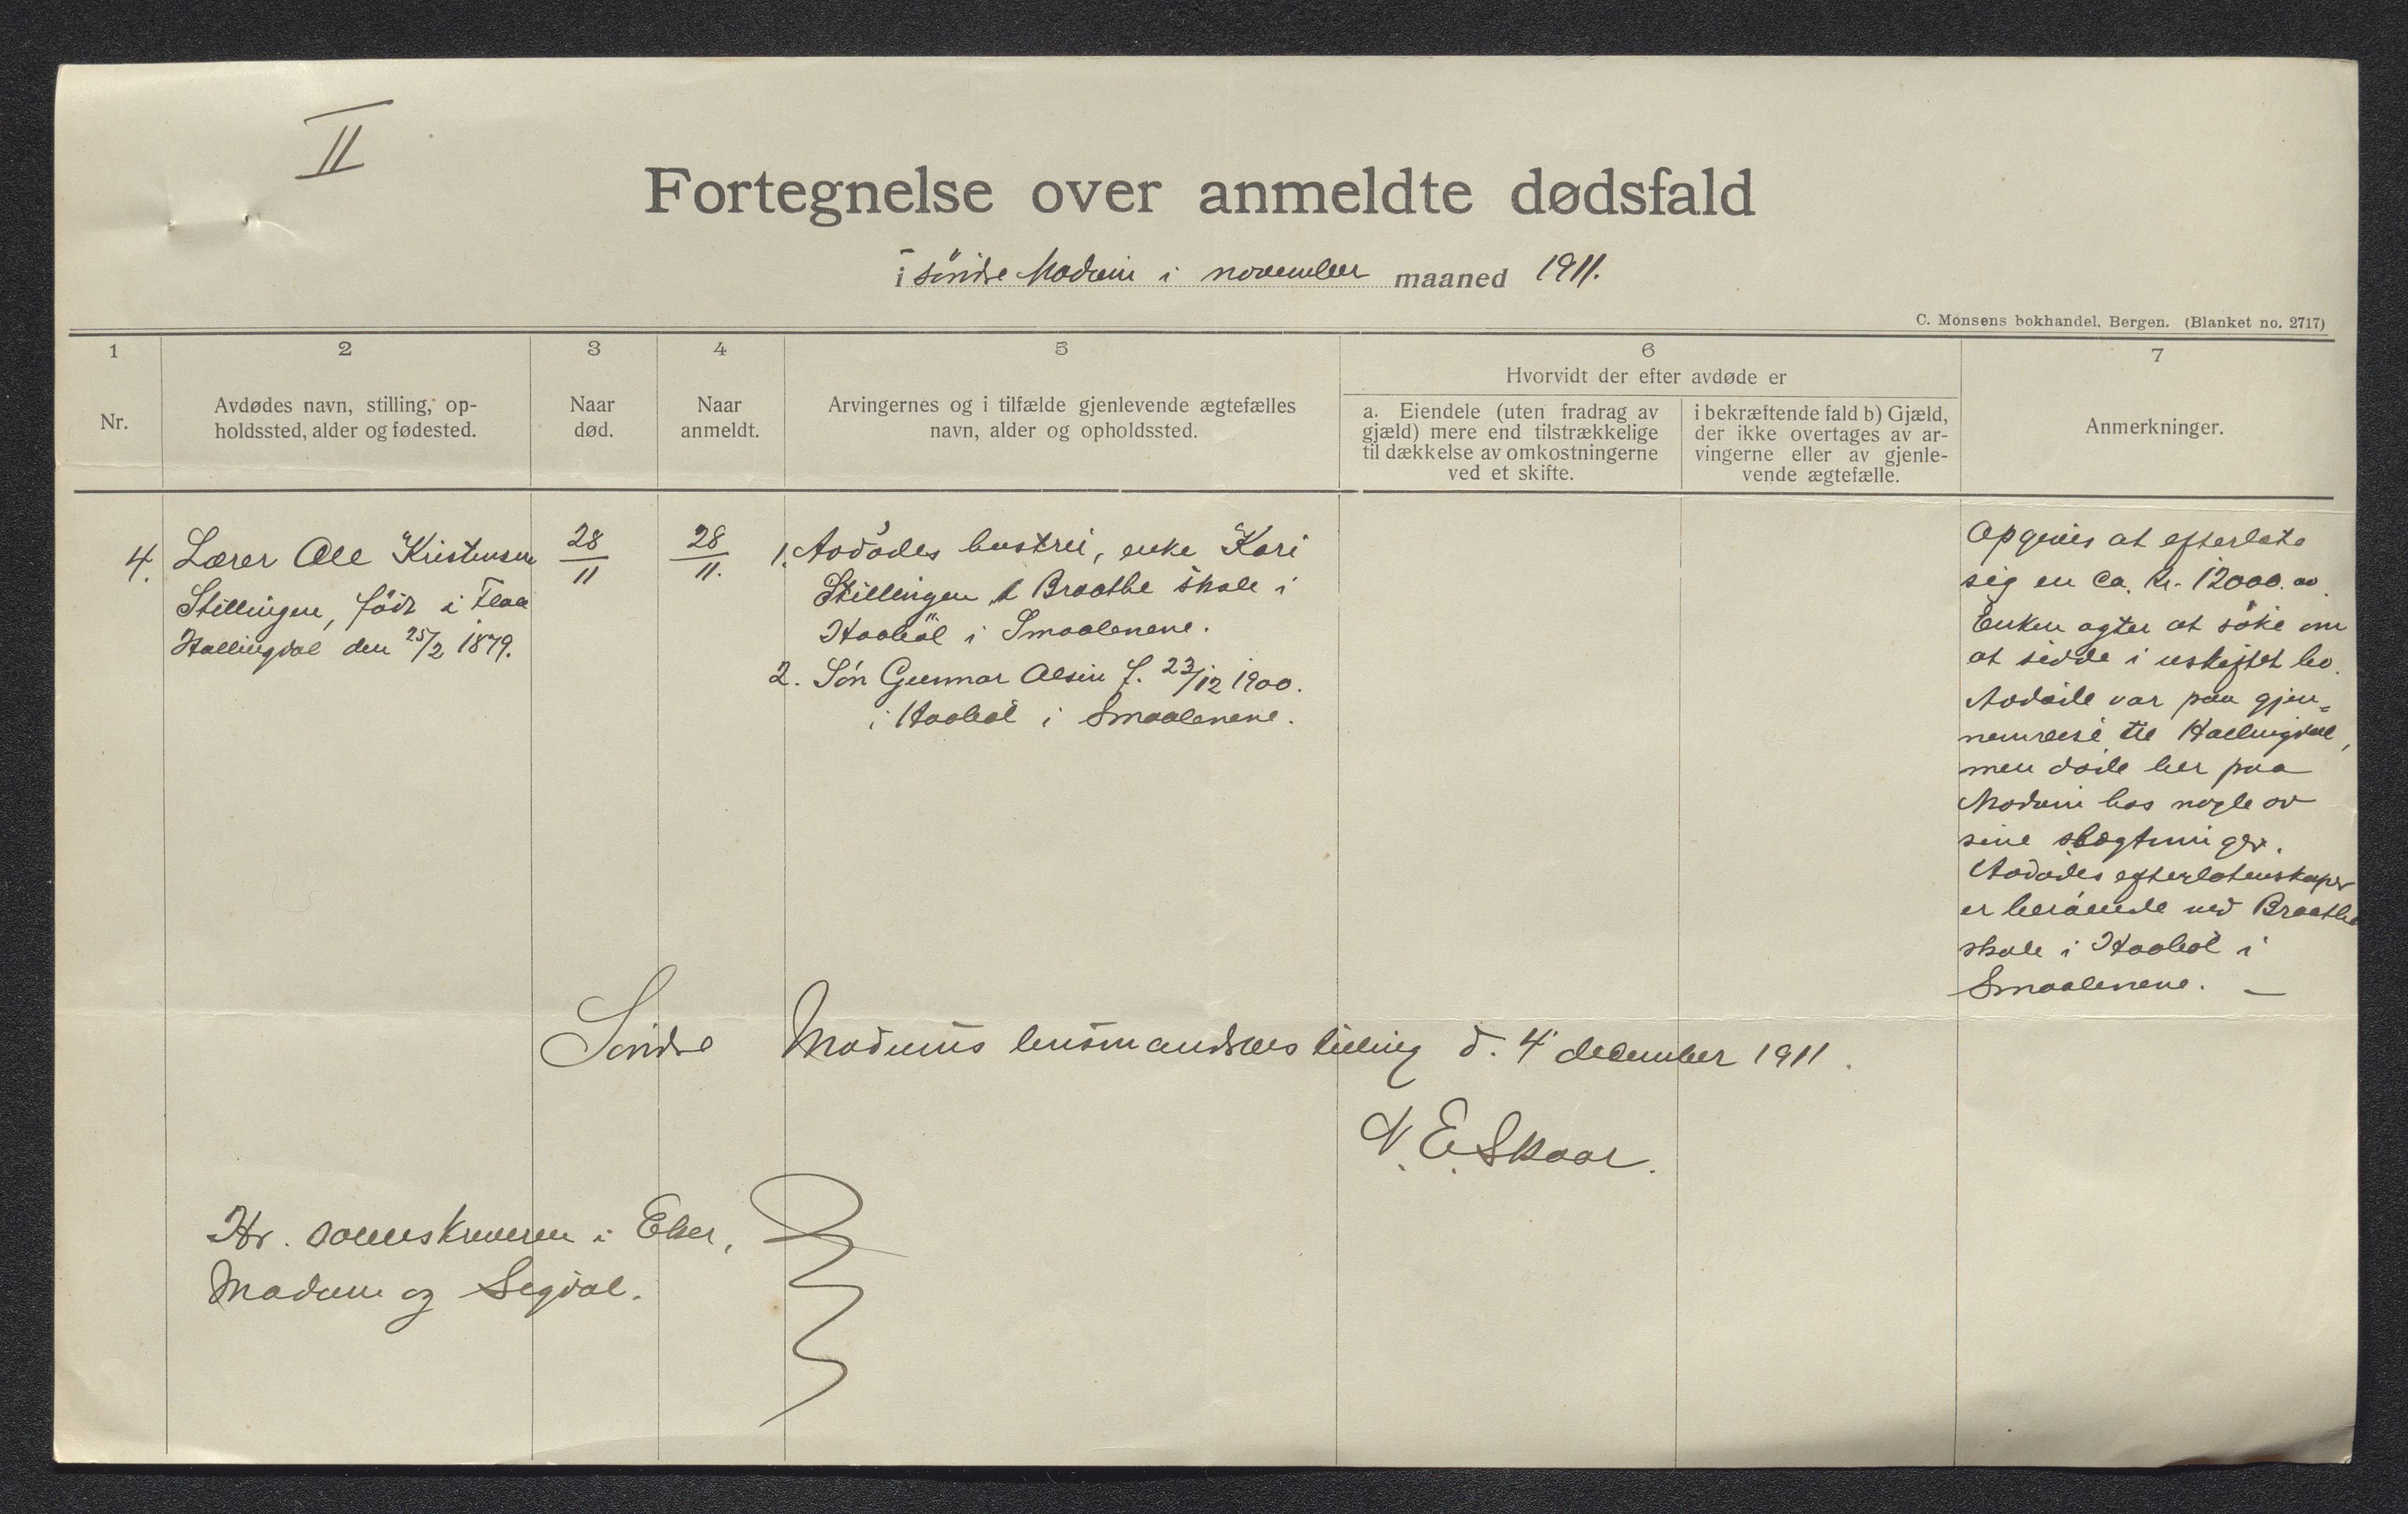 II
Fortegnelse over anmeldte dødsfald
i søndre Modum i november maaned 1911.
C. Monsens bokhandel, Bergen. (Blanket no. 2717)
1 2 3 4 5 6 7
Nr.
Avdødes navn, stilling, op-
holdssted, alder og fødested.
Naar
død.
Naar
anmeldt.
Arvingernes og i tilfælde gjenlevende ægtefælles
navn, alder og opholdssted.
Hvorvidt der efter avdøde er
a. Eiendele (uten fradrag av
gjæld) mere end tilstrækkelige
til dækkelse av omkostningerne
ved et skifte.
i bekræftende fald b) Gjæld,
der ikke overtages av ar-
vingerne eller av gjenle-
vende ægtefælle.
Anmerkninger.
4.
Lærer Ole Kristensen
Stillingen, född i Flaa
Hallingdal den 25/2 1879.
28/11
28/11.
1. Avdødes hustru, enke Kari
Stillingen, Braathe skole i
Haabøl i Smaalenene.
2. Søn Gunnar Olsen f. 23/12 1900.
i Haabøl i Smaalenene.
Opgives at efterlate
sig en ca. kr. 12000.00.
Enken agter at søke om
at sidde i uskiftet bo.
Avdøde var paa gjen-
nemreise til Hallingdal,
men døde her paa
Modum hos nogle av
sine slægtninger.
Avdødes efterlatenskaper
er beroende ved Braathe
skole i Haabøl i
Smaalenene. —
Søndre Modums lensmandsbestilling d. 4 december 1911.
N. E. Skaar.
Hr. sorenskriveren i Eker,
Modum og Sigdal.